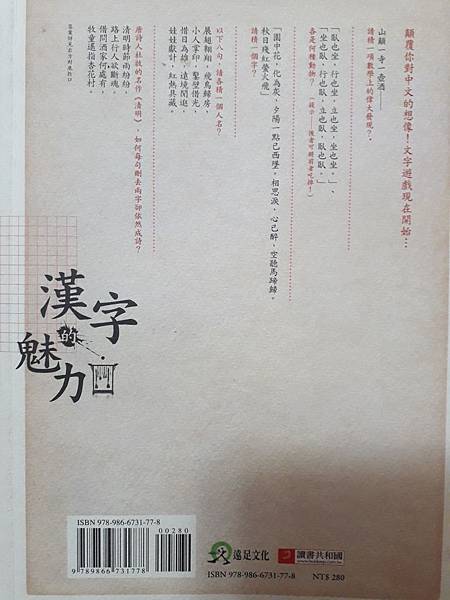 顛覆你對中文的想像！文字遊戲現在開始…
山顛一寺一壺酒——
請猜一項數學上的偉大發現？
「臥也坐，行也坐，立也坐，坐也坐。」、
「坐也臥，行也臥，立也臥，臥也臥。」
各是何種動物？（提示——後者可將前者吃掉！）
「園中花，化為灰，夕陽一點已西墜。相思淚，心已醉，空聽馬蹄歸。
秋日殘紅螢火飛」
請猜一個字？
以下八句，請各猜一個人名？
展翅翱翔，飛鳥歸房，
小人掌印，鑿壁借光，
惜日為雄，遠境閒逛，
娃娃獻計，紅熱具藏。
唐詩人杜牧的名作〈清明〉，如何每句刪去兩字卻依然成詩？
清明時節雨紛紛，
路上行人欲斷魂。
借問酒家何處有，
牧童遙指杏花村。
漢字
的
魅力
ISBN 978-986-6731-77-8
00280
9789866731778
遠足文化
讀書共和國
www.bookrep.com.tw
ISBN 978-986-6731-77-8
NT$ 280